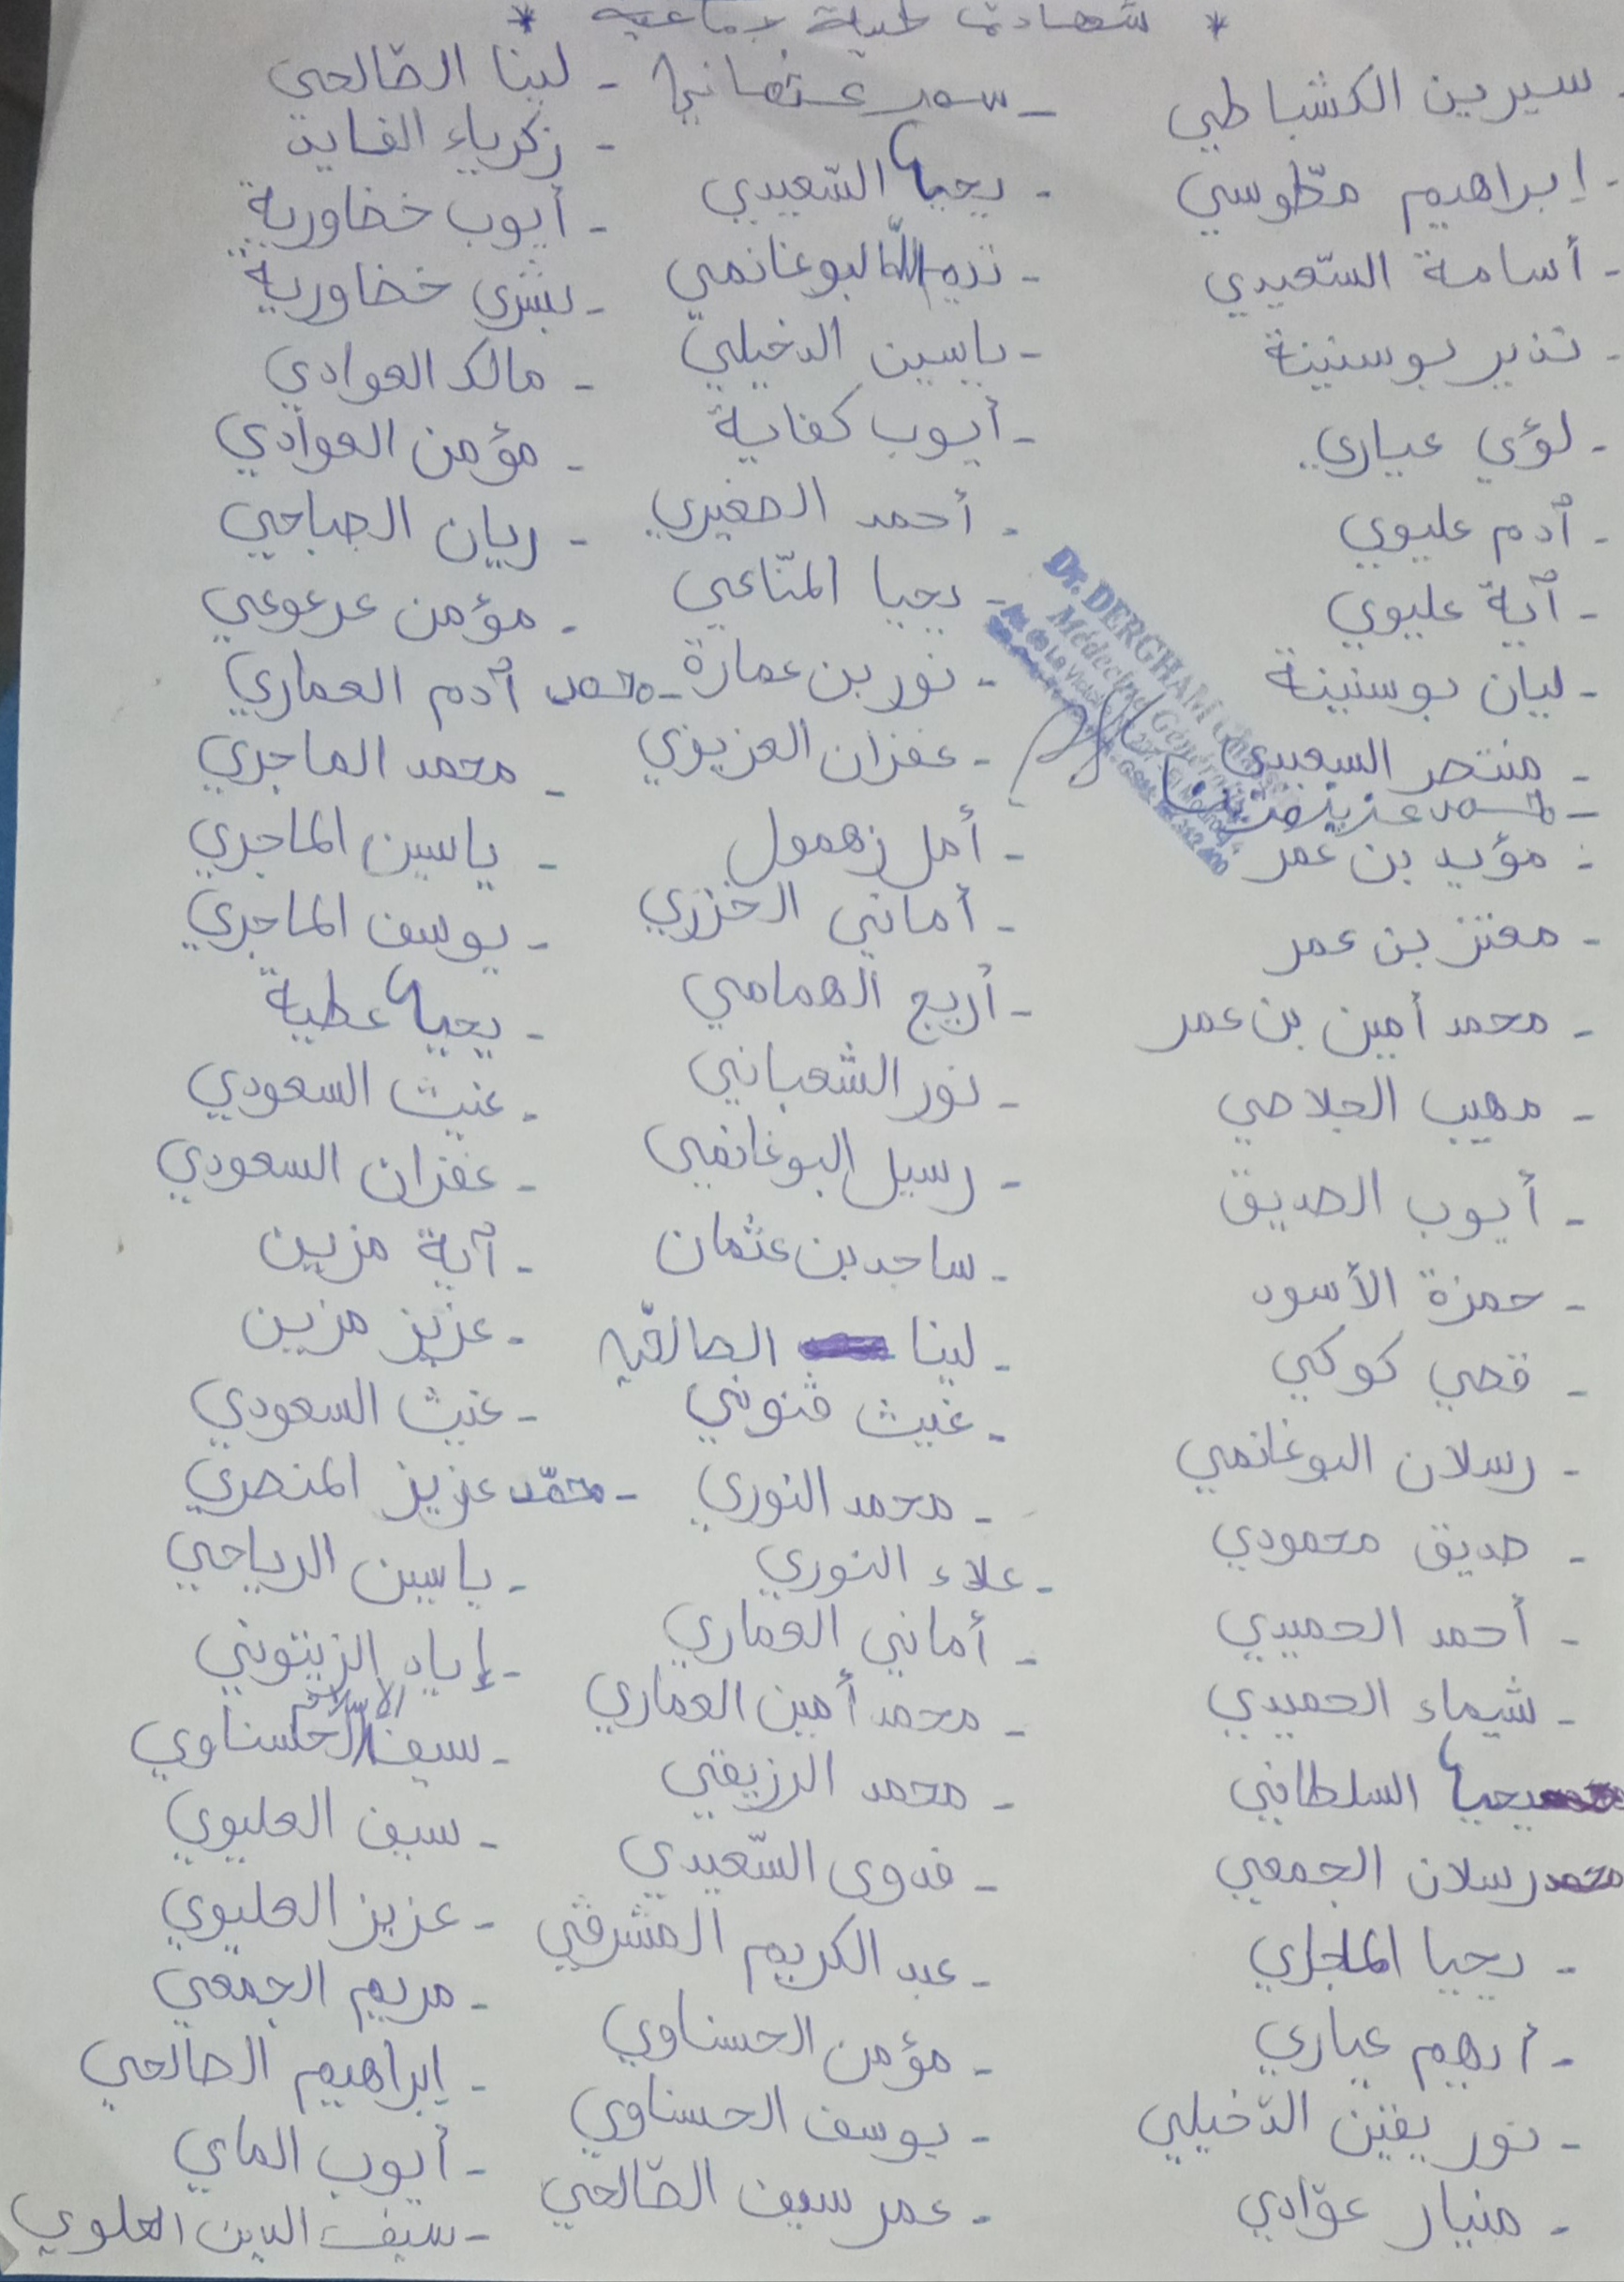 * شهادة طبية جماعية *
- سيرين الكشباطي
- إبراهيم مطوسي
- أسامة السّعيدي
- نذير بوسنينة
- لؤي عياري
- آدم عليوي
- آية عليوي
- ليان بوسنينة
- منتصر السعيدي
- محمد عزيز
- مؤيد بن عمر
- معتز بن عمر
- محمد أمين بن عمر
- مهيب الجلاصي
- أيوب الصديق
- حمزة الأسود
- قصي كوكي
- رسلان البوغانمي
- صديق محمودي
- أحمد الحميدي
- شيماء الحميدي
يحيا السلطاني
محمد رسلان الجمعي
- يحيا الماجري
- أدهم عياري
- نور يقين الدّخيلي
- منيار عوّادي
- سمر عثماني
- يحيا السّعيدي
- البوغانمي
- ياسين الدخيلي
- أيوب كفاية
- أحمد الصغيري
- يحيا المنّاعي
- نور بن عمارة
- غفران العزيزي
- أمل زهمول
- أماني الخزري
- أريج الهمامي
- نور الشعباني
- رسيل البوغانمي
- ساجد بن عثمان
- لينا
- غيث ڨنوني
- محمد النوري
- علاء النوري
- أماني العماري
- محمد أمين العماري
- محمد الرزيقي
- فدوى السّعيدي
- عبد الكريم المشرڨي
- مؤمن الحسناوي
- يوسف الحسناوي
- عمر سيف الصّالحي
- لينا الصّالحي
- زكرياء الفايد
- أيوب خضاورية
- بشرى خضاورية
- مالك العوادي
- مؤمن العوادي
- ريان الصباحي
- مؤمن عرعوعي
- محمد آدم العماري
- محمد الماجري
- ياسين الماجري
- يوسف الماجري
- يحيا عطية
- غيث السعودي
- غفران السعودي
- آية مزيين
- عزيز مزيين
- غيث السعودي
- محمّد عزيز المنصري
- ياسين الرياحي
- إياد الزيتوني
- سيف الإسلام الحسناوي
- سيف العليوي
- عزيز العليوي
- مريم الجمعي
- إبراهيم الصالحي
- أيوب الماي
- سيف الدين العلوي
Dr. DERGHAM
Médecine Générale